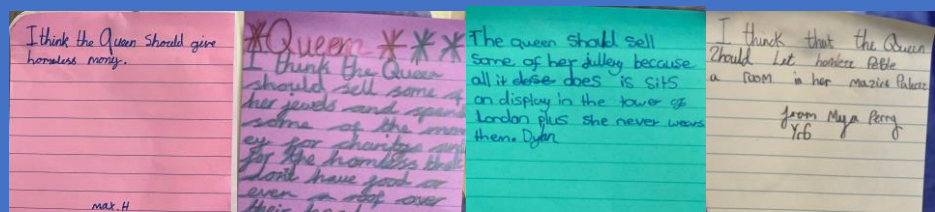 I think the Queen Should give
homeless money.
max.H
*Queen ***
I think the Queen
should sell some of
her jewels and spend
some of the mon
ey for charitys and
for the homless that
dont have food or
even a roof over
their head
The queen should sell
some of her jullery because
all it dose does is sits
on display in the tower of
London plus she never wears
them. Dylan
I thinck that the Queen
Should Let homless
a room in her Palace
from Mya Perry
Yr6